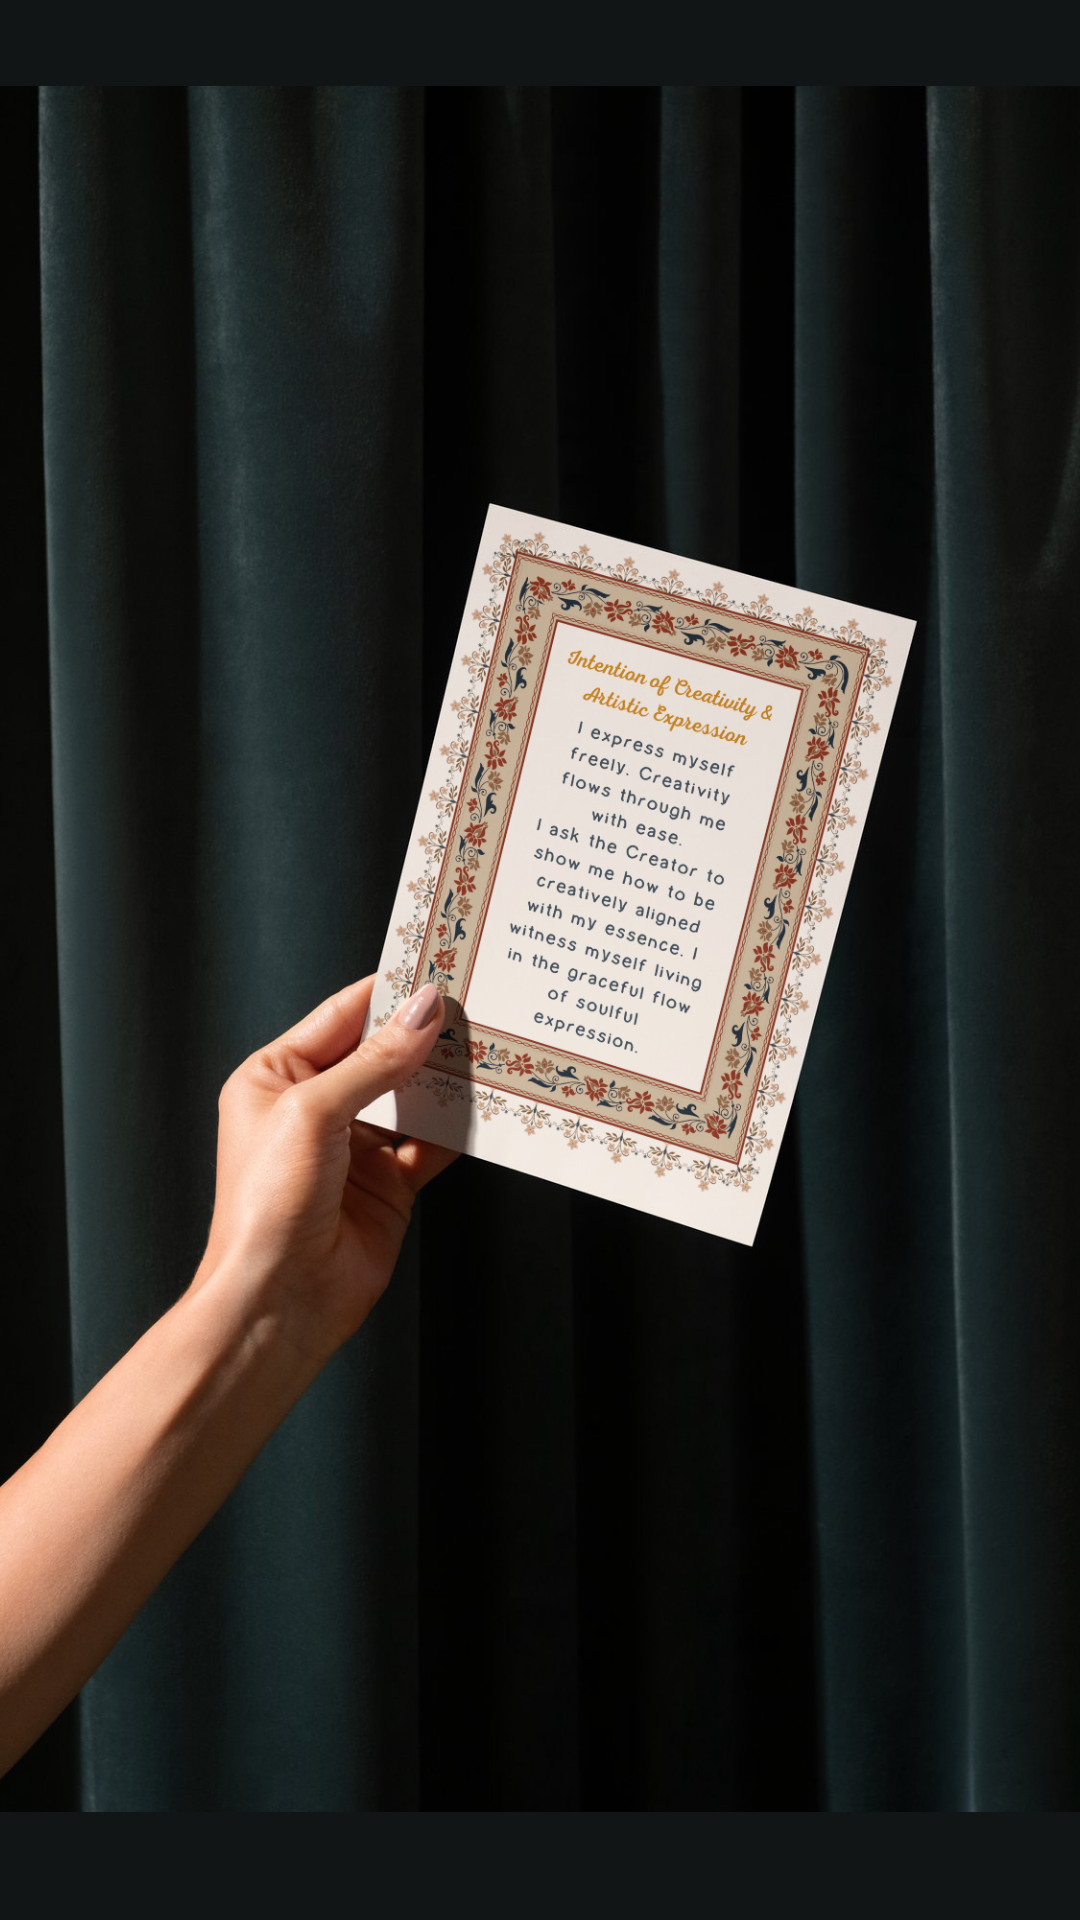 Intention of Creativity &
Artistic Expression
I express myself
freely. Creativity
flows through me
with ease.
I ask the Creator to
show me how to be
creatively aligned
with my essence. I
witness myself living
in the graceful flow
of soulful
expression.